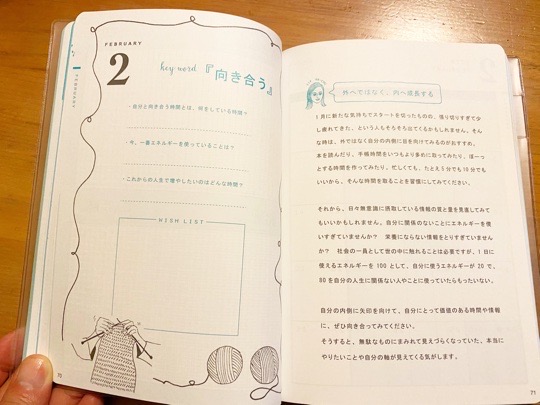 FEBRUARY
2
key word 『向き合う』
・自分と向き合う時間とは、何をしている時間?
・今、一番エネルギーを使っていることは?
・これからの人生で増やしたいのはどんな時間?
WISH LIST
70
外へではなく、内へ成長する
1月に新たな気持ちでスタートを切ったものの、張り切りすぎて少
し疲れてきた、という人もそろそろ出てくるかもしれません。そん
な時は、外ではなく自分の内側に目を向けてみるのがおすすめ。
本を読んだり、手帳時間をいつもより多めに取ってみたり、ぼーっ
とする時間を作ってみたり。忙しくても、たとえ5分でも10分でも
いいから、そんな時間を取ることを習慣にしてみてください。
それから、日々無意識に摂取している情報の質と量を見直してみて
もいいかもしれません。自分に関係のないことにエネルギーを使
いすぎていませんか? 栄養にならない情報をとりすぎていません
か? 社会の一員として世の中に触れることは必要ですが、1日に
使えるエネルギーを100として、自分に使うエネルギーが20で、
80を自分の人生に関係ない人やことに使っていたらもったいない。
自分の内側に矢印を向けて、自分にとって価値のある時間や情報
に、ぜひ向き合ってみてください。
そうすると、無駄なものにまみれて見えづらくなっていた、本当に
やりたいことや自分の軸が見えてくる気がします。
71